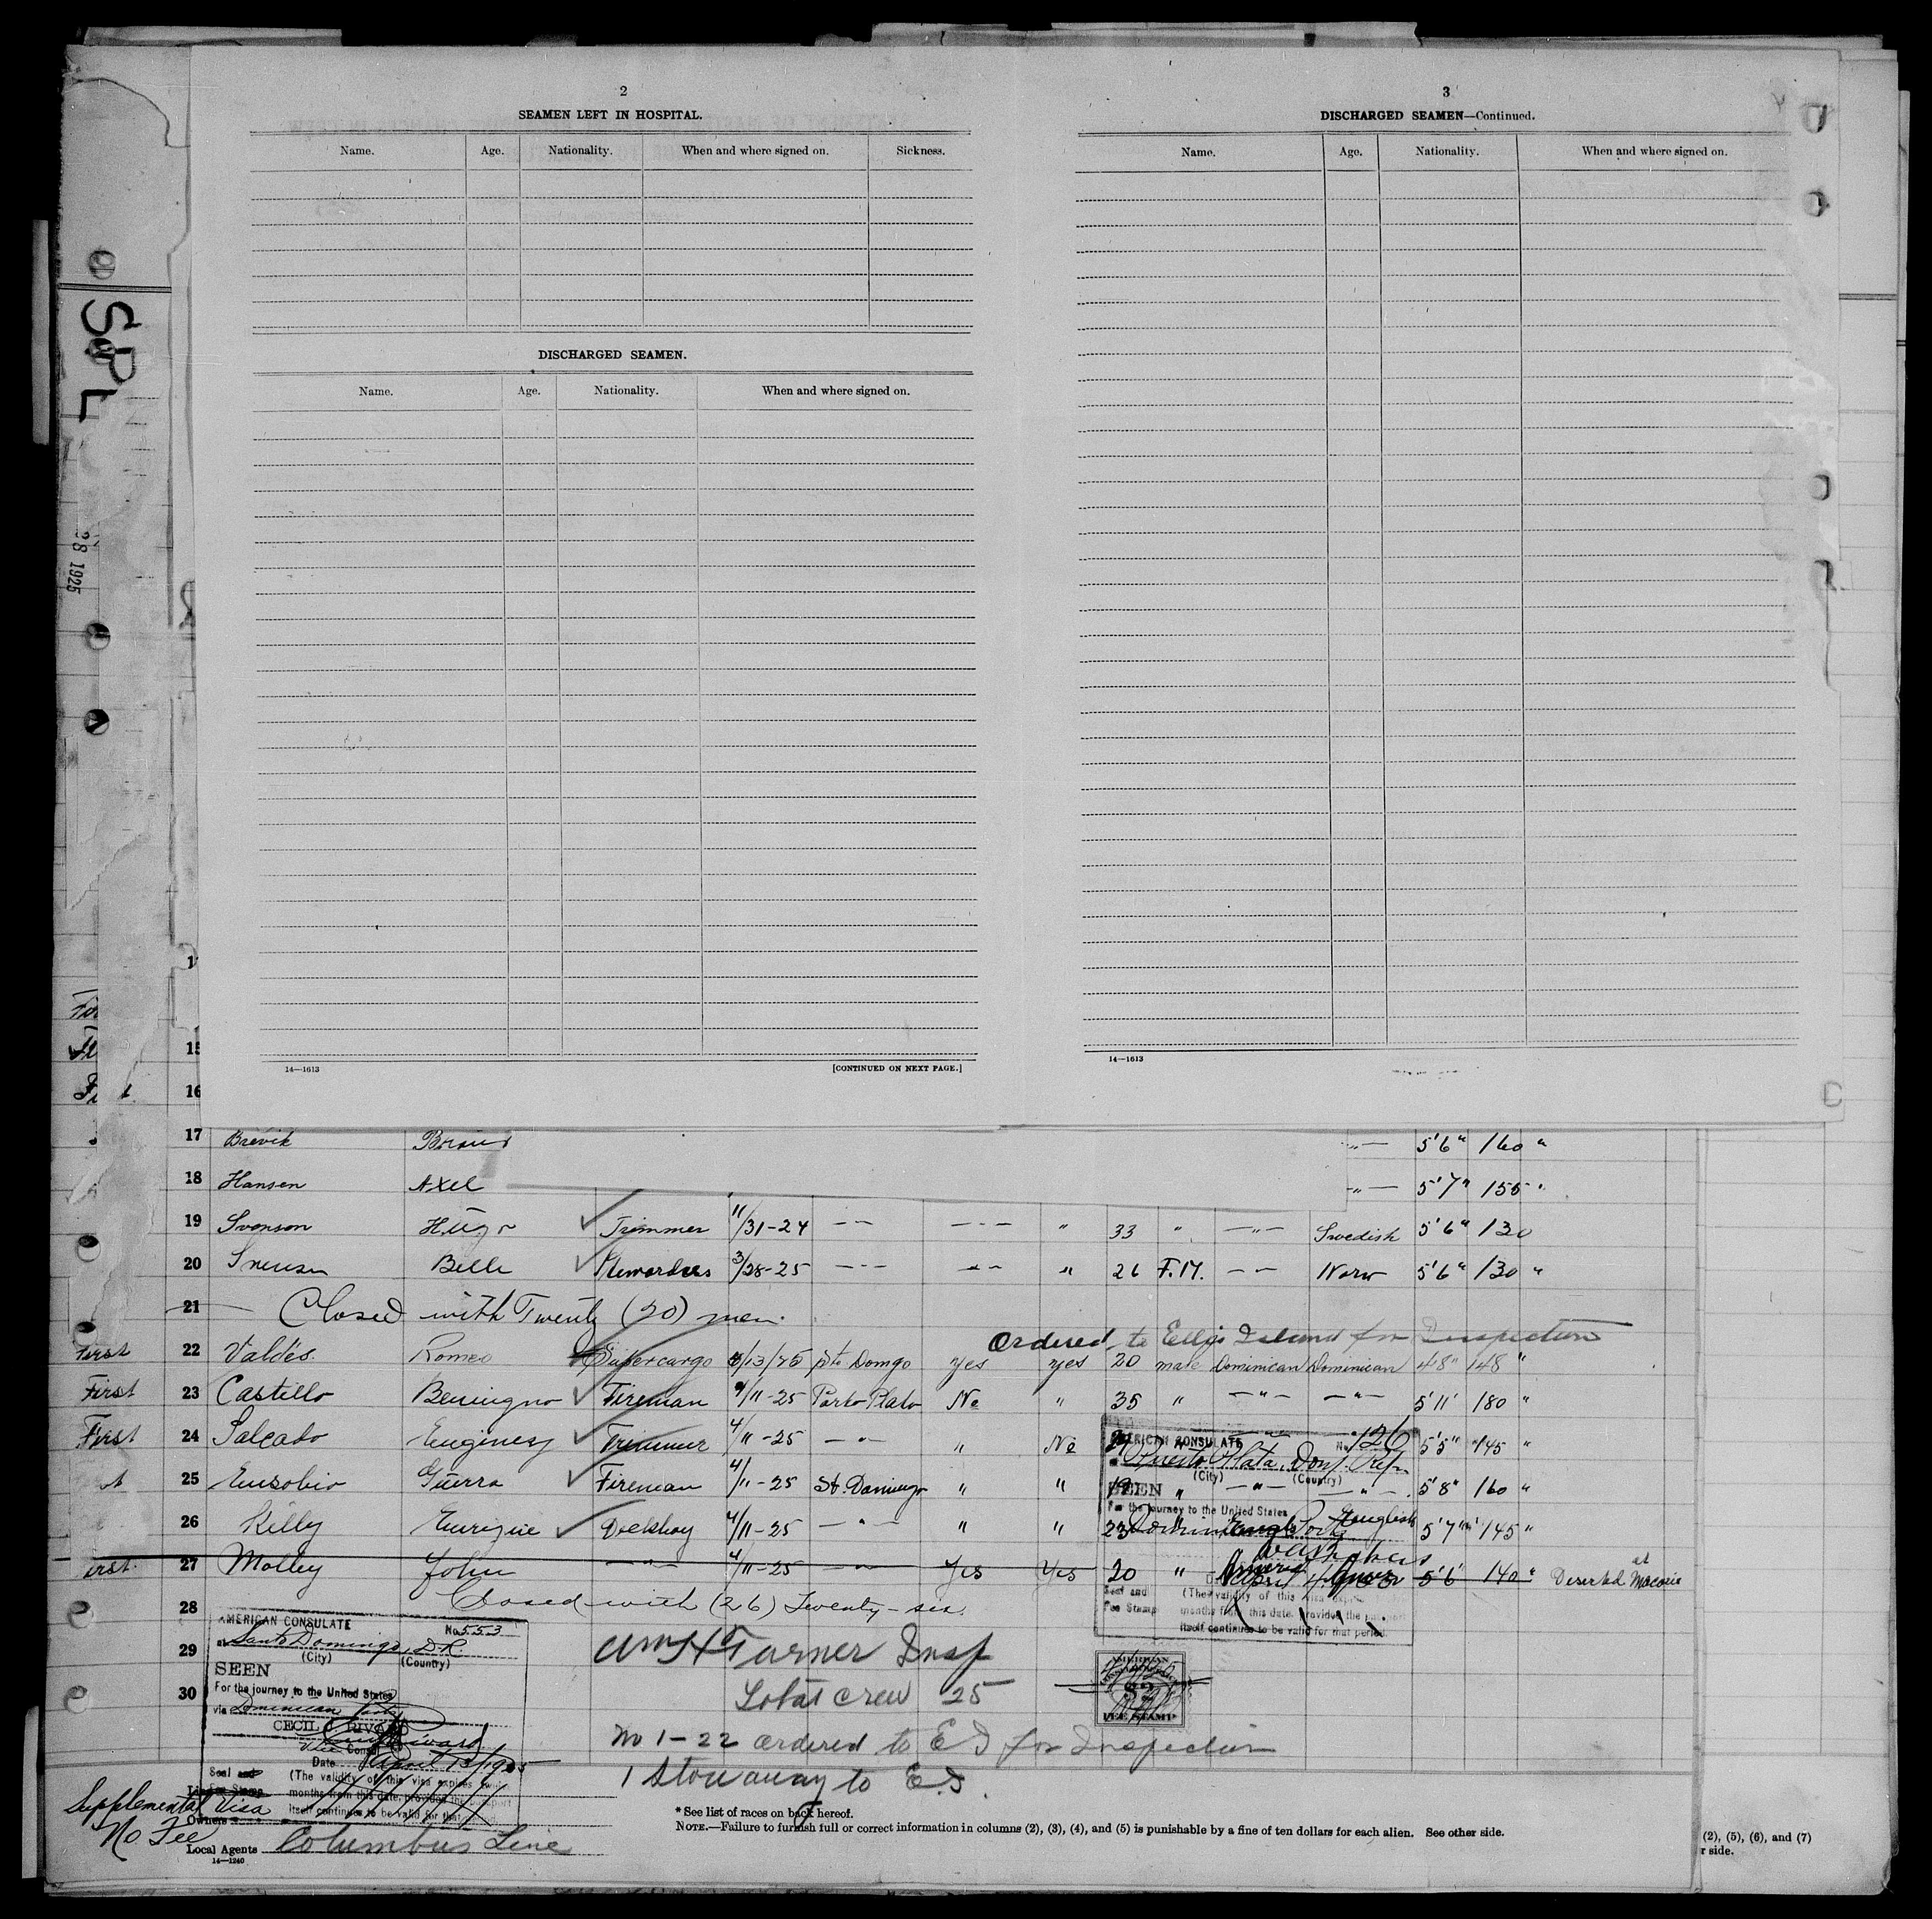 2
SEAMEN LEFT IN HOSPITAL.
Name. Age. Nationality. When and where signed on. Sickness.
DISCHARGED SEAMEN.
Name. Age. Nationality. When and where signed on.
14—1613 [CONTINUED ON NEXT PAGE.]
3
DISCHARGED SEAMEN—Continued.
Name. Age. Nationality. When and where signed on.
14—1613
SPL
28 1925
15
16
17 Brevik 5'6" 160 "
18 Hansen Axel 5'7" 155 "
19 Svenson Hugo Trimmer 11/31-24 — " — — " — " 33 " — " — Swedish 5'6" 130
20 Belle Stewardess 3/28-25 — " — — " — " 26 F.M. — " — Norw 5'6" 130 "
21 Closed with Twenty (20) men.
Ordered to Ellis Island for Inspection
First 22 Valdés. Romeo Supercargo 4/13/25 Sto Domgo yes yes 20 male Dominican Dominican 4'8" 148 "
First 23 Castillo Benigno Fireman 4/11-25 Porto Plata No " 35 " — " — — " — 5'11" 180 "
First 24 Salcado Trimmer 4/11-25 — " — " No 5'5" 145 "
25 Eusobio Guerra Fireman 4/11-25 St. Domingo " " " — " — — " — 5'8" 160 "
26 Killy Deckboy 4/11-25 — " — " " 23 English 5'7" 145 "
27 Molley John — " — 4/11-25 — " — Yes Yes 20 " 5'6" 140 " Deserted at Macoris
28 Closed with (26) Twenty-six.
AMERICAN CONSULATE No 126
at Puerto Plata, Dom. Rep.
(City) (Country)
SEEN
For the journey to the United States
Seal and
Fee Stamp
(The validity of this visa expires
months from this date, provided the passport
itself continues to be valid for that period.
29
30
AMERICAN CONSULATE No 553
at Santo Domingo, D.R.
(City) (Country)
SEEN
For the journey to the United States
via Dominican Ports
CECIL RIVARD
Vice Consul
Date April 13/1925
Seal and
Fee Stamp
(The validity of this visa expires
months from this date, provided the passport
itself continues to be valid for that period.
Wm H Turner Insp
Total crew 25
No 1-22 ordered to E I for Inspection
1 Stowaway to E.I.
AMERICAN
$2
FEE STAMP
Supplemental Visa
No Fee
Owners
Local Agents Columbus Line
14—1240
* See list of races on back hereof.
NOTE.—Failure to furnish full or correct information in columns (2), (3), (4), and (5) is punishable by a fine of ten dollars for each alien. See other side.
(2), (5), (6), and (7)
r side.